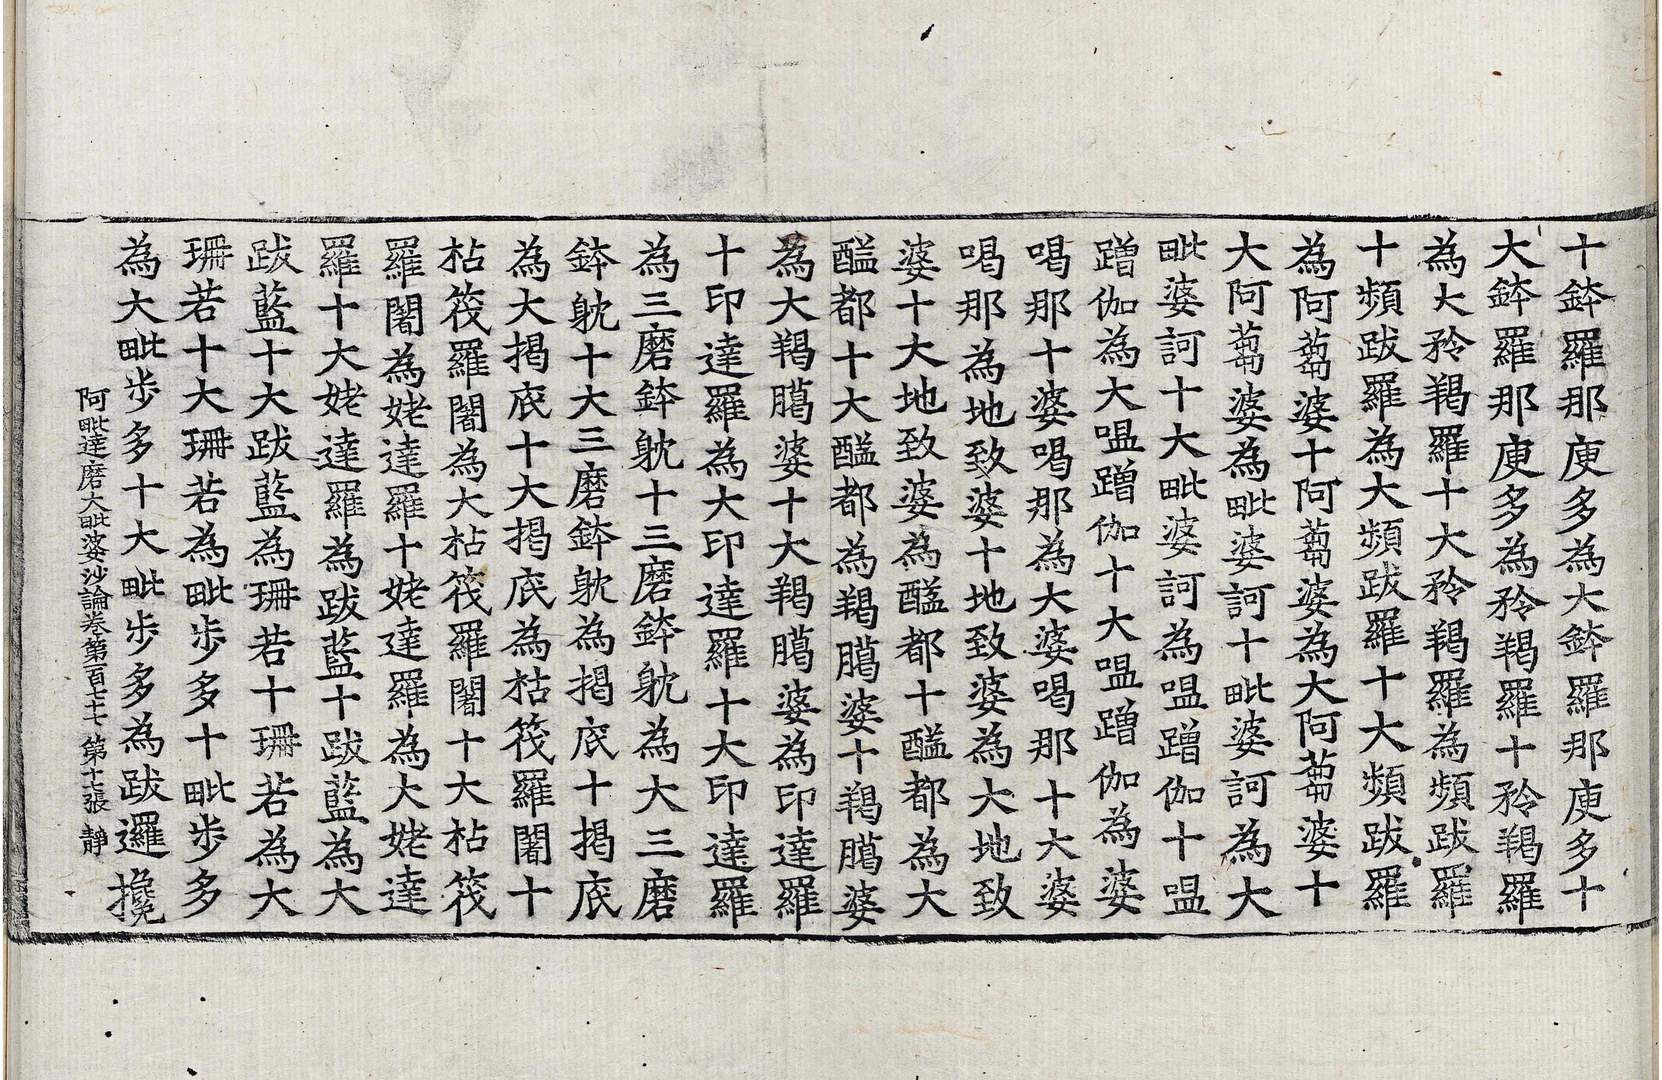 十鉢羅那庾多為大鉢羅那庾多十
大鉢羅那庾多為矜羯羅十矜羯羅
為大矜羯羅十大矜羯羅為頻跋羅
十頻跋羅為大頻跋羅十大頻跋羅
為阿蒭婆十阿蒭婆為大阿蒭婆十
大阿蒭婆為毗婆訶十毗婆訶為大
毗婆訶十大毗婆訶為嗢蹭伽十嗢
蹭伽為大嗢蹭伽十大嗢蹭伽為婆
喝那十婆喝那為大婆喝那十大婆
喝那為地致婆十地致婆為大地致
婆十大地致婆為醯都十醯都為大
醯都十大醯都為羯臈婆十羯臈婆
為大羯臈婆十大羯臈婆為印達羅
十印達羅為大印達羅十大印達羅
為三磨鉢躭十三磨鉢躭為大三磨
鉢躭十大三磨鉢躭為揭底十揭底
為大揭底十大揭底為枯筏羅闍十
枯筏羅闍為大枯筏羅闍十大枯筏
羅闍為姥達羅十姥達羅為大姥達
羅十大姥達羅為跋藍十跋藍為大
跋藍十大跋藍為珊若十珊若為大
珊若十大珊若為毗步多十毗步多
為大毗步多十大毗步多為跋邏攙
阿毗達磨大毗婆沙論卷第百七十七 第十七張 靜